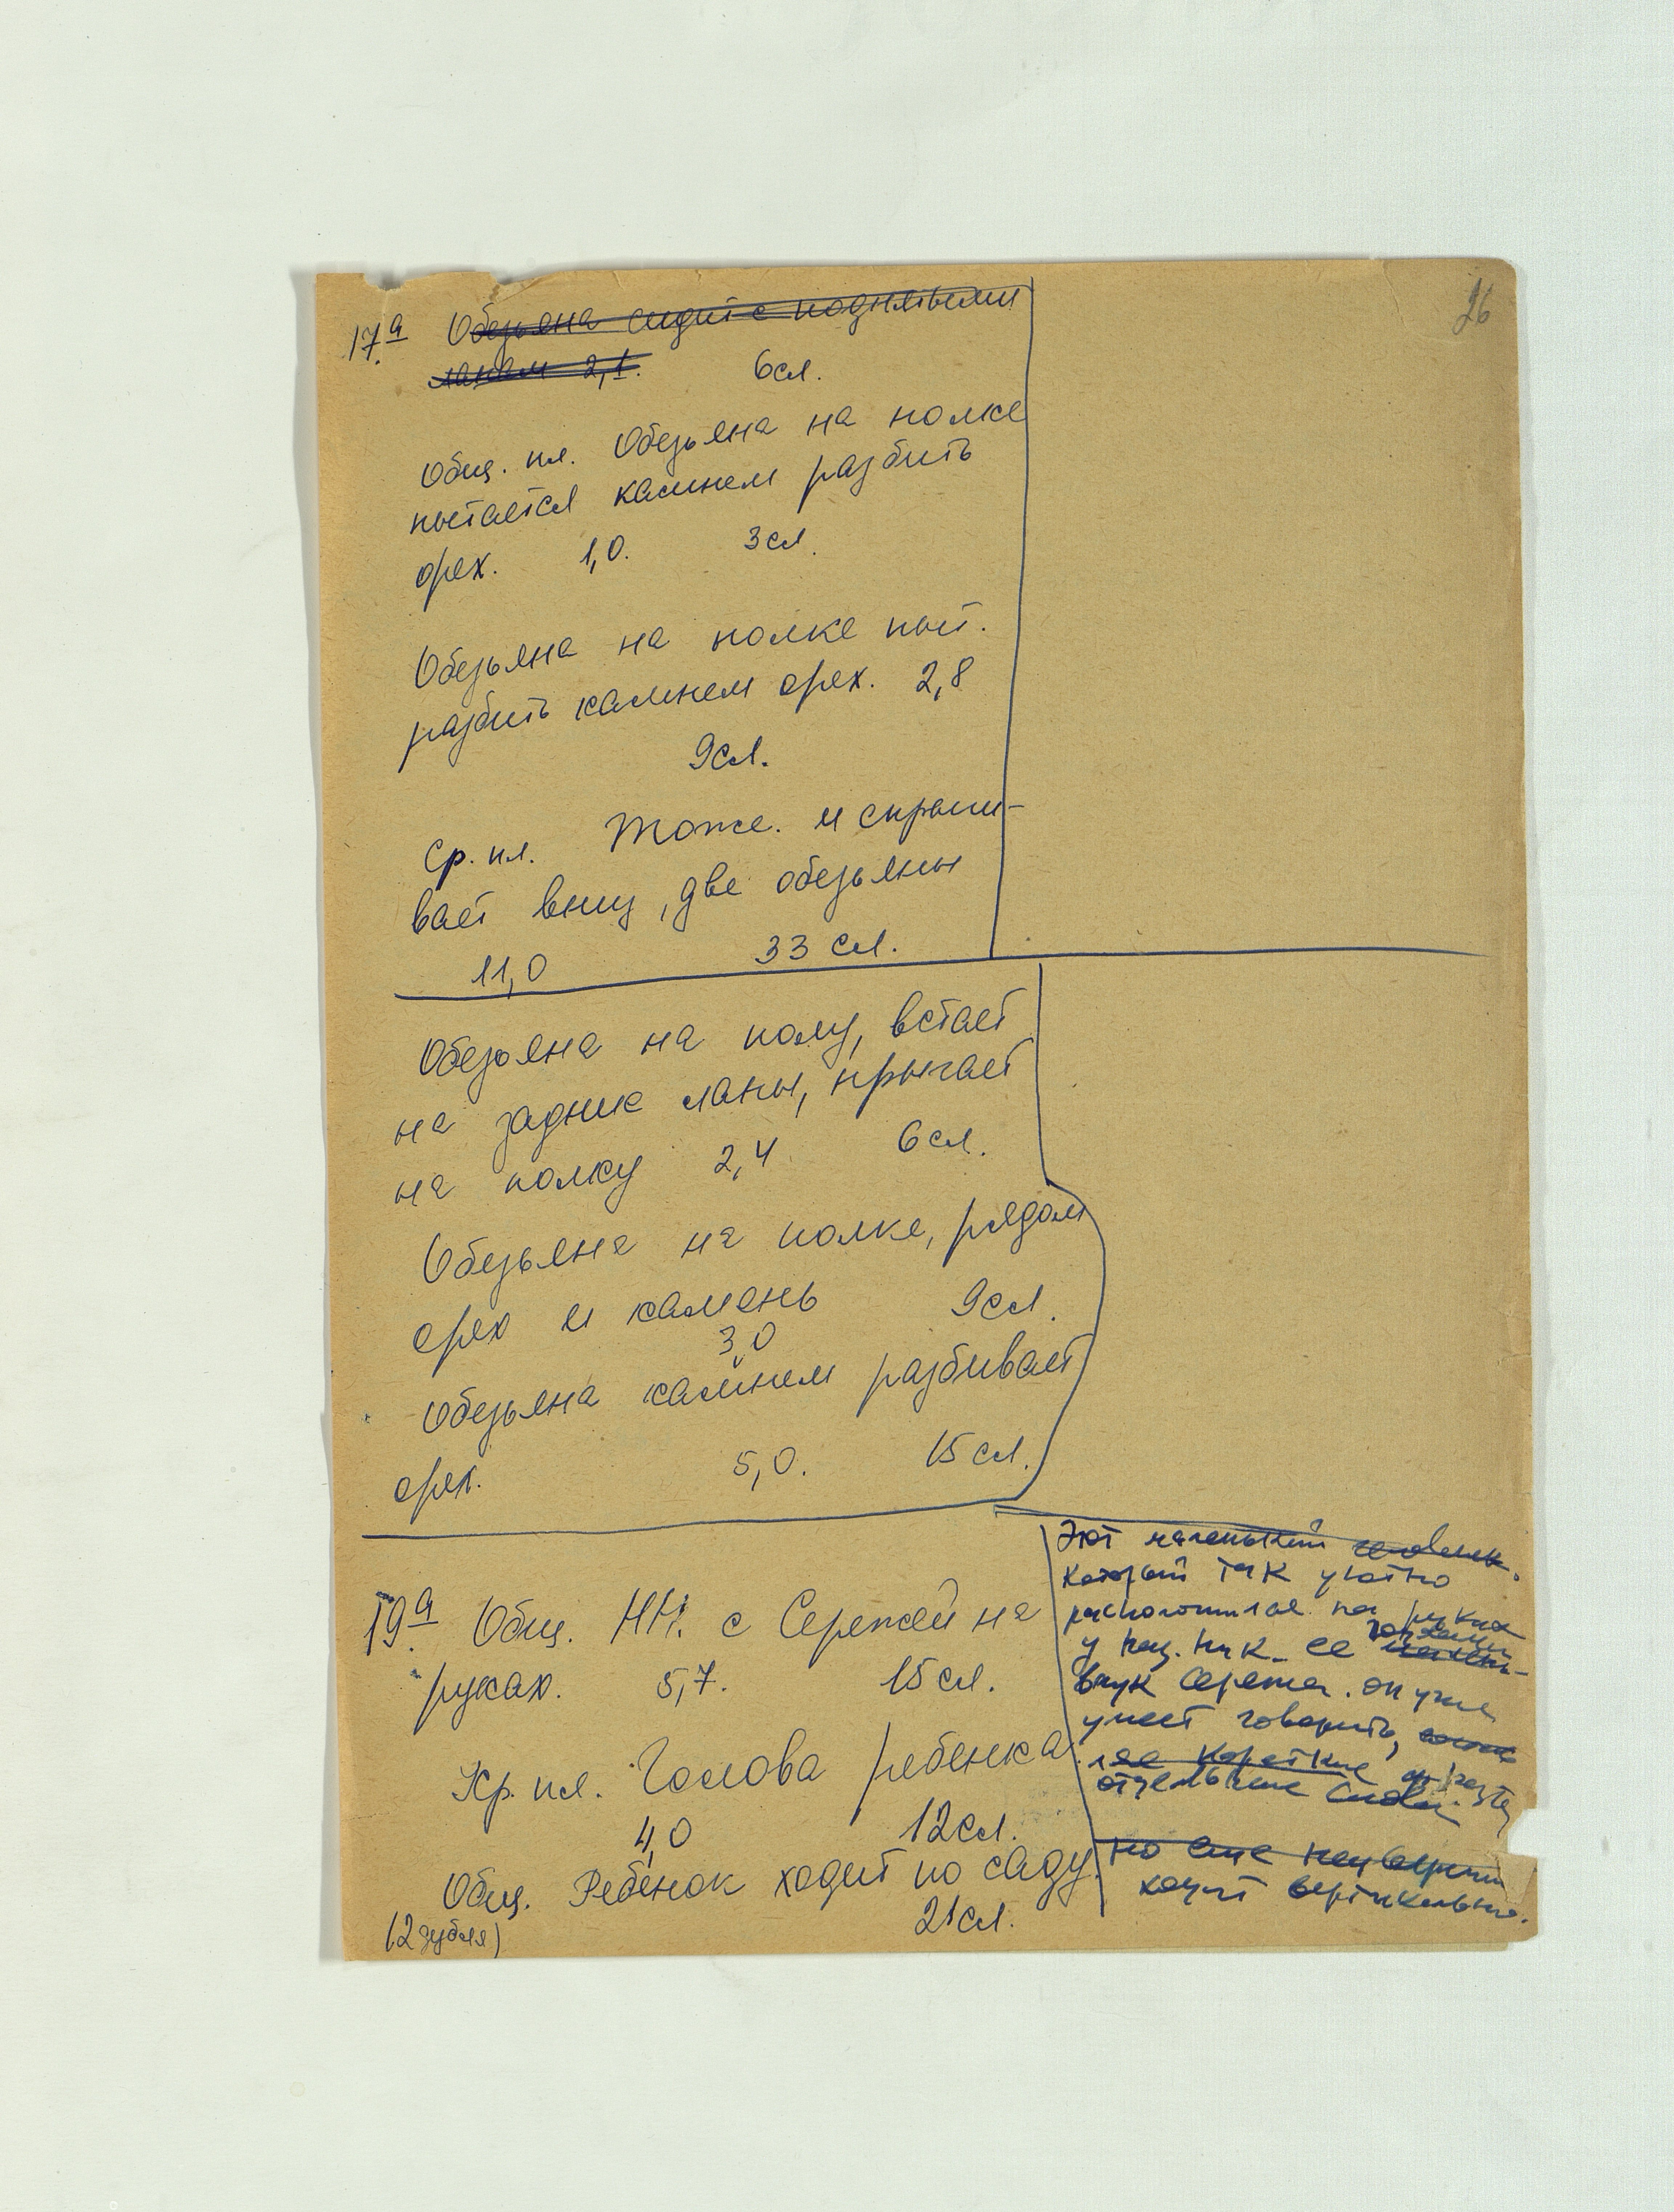 26
17а Обезьяна сидит с поднятыми
лапам 2,1. 6сл.
Общ. пл. Обезьяна на полке
пытается камнем разбить
орех. 1,0. 3сл.
Обезьяна на полке пыт.
разбить камнем орех. 2,8
9сл.
Ср. пл. Тоже. и спрыги-
вает вниз, две обезьяны
11,0 33 сл.
Обезьяна на полу, встает
на задние лапы, прыгает
на полку 2,4 6сл.
Обезьяна на полке, рядом
орех и камень 9сл.
3,0
Обезьяна камнем разбивает
орех. 5,0. 15 сл.
19а Общ. НН. с Сережей на
руках. 5,7. 15сл.
Кр. пл. Голова ребенка.
4,0 12сл.
Общ. Ребенок ходит по саду.
(2 дубля) 21сл.
Этот маленький человек.
который так уютно
расположился на руках
у Над. Ник. ее
внук Сережа. он уже
умеет говорить,
короткие
отдельные слова.
но еще неуверенно
ходит вертикально.